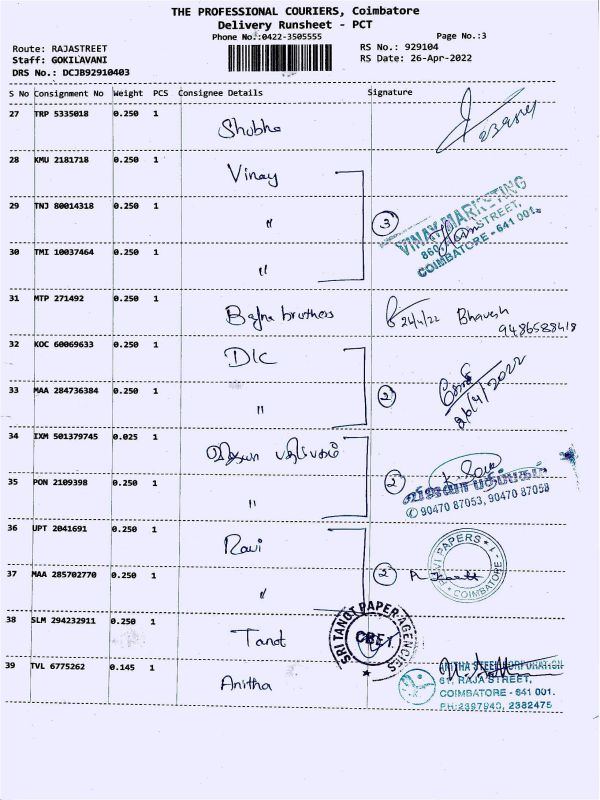 THE PROFESSIONAL COURIERS, Coimbatore
Delivery Runsheet - PCT
Phone No.:0422-3505555
Page No.:3
Route: RAJASTREET
RS No.: 929104
Staff: GOKILAVANI
RS Date: 26-Apr-2022
DRS No.: DCJB92910403
S No Consignment No Weight PCS Consignee Details Signature
27 TRP 5335018 0.250 1 Shubha
28 KMU 2181718 0.250 1 Vinay
29 TNJ 80014318 0.250 1 "
3
VINAY MARKETING
860, STREET,
COIMBATORE - 641 001.
30 TMI 10037464 0.250 1 "
31 MTP 271492 0.250 1 Bafna brothers
24/4/22 Bhavesh
9486588418
32 KOC 60069633 0.250 1 DLC
33 MAA 284736384 0.250 1 "
2
26/4/2022
34 IXM 501379745 0.025 1 விஜயா பதிப்பகம்
35 PON 2109398 0.250 1 "
2
விஜயா பதிப்பகம்
✆ 90470 87053, 90470 87058
36 UPT 2041691 0.250 1 Ravi
37 MAA 285702770 0.250 1 "
2
RAVI PAPERS
COIMBATORE - 1
38 SLM 294232911 0.250 1 Tanot
SRI TANOT PAPER AGENCIES
CBE-1
39 TVL 6775262 0.145 1 Anitha
ANITHA STEEL CORPORATION
61, RAJA STREET,
COIMBATORE - 641 001.
PH:2397940, 2382475